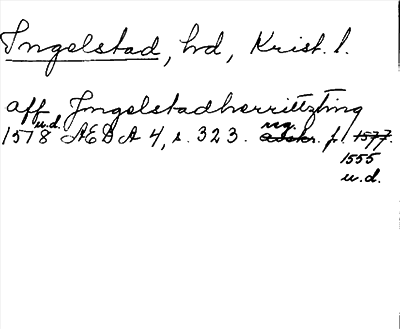 Ingelstad, hd, Krist. l.
aff Jngelstadherritzting
1578 u.d. ÆDA 4, s. 323. reg. afskr. f. 1577.
1555
u.d.